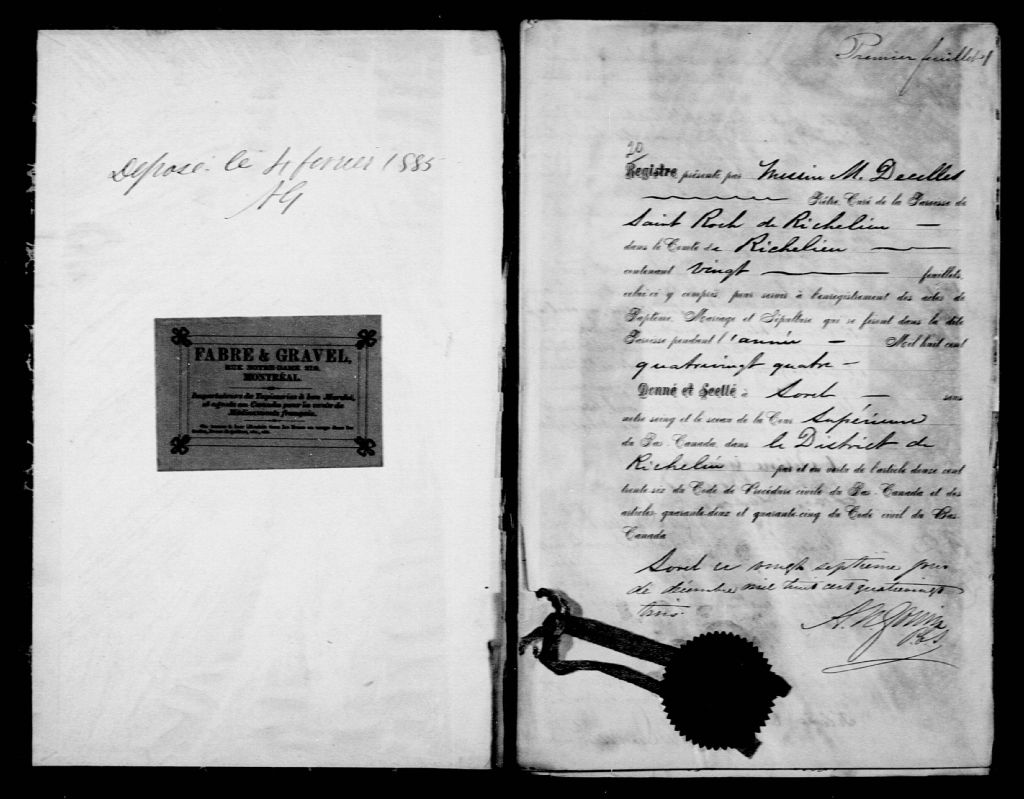 Deposé le 4 fevrier 1885
AG
FABRE & GRAVEL,
RUE NOTRE-DAME 219.
MONTRÉAL.
Importateurs de Tapisseries à bon Marché,
et agents en Canada pour la vente de
Médicaments français.
Premier feuillet
20
Registre présenté par Messire M. Decelles
Prêtre, Curé de la Paroisse de
Saint Roch de Richelieu
dans le Comté de Richelieu
contenant vingt feuillets,
celui-ci y compris, pour servir à l'enregistrement des actes de
Baptême, Mariage et Sépulture qui se feront dans la dite
Paroisse pendant l'année Mil huit cent
quatrevingt quatre
Donné et Scellé à Sorel sous
notre seing et le sceau de la Cour Supérieure
du Bas-Canada, dans le District de
Richelieu par et en vertu de l'article douze cent
trente-six du Code de Procédure civile du Bas-Canada et des
articles quarante-deux et quarante-cinq du Code civil du Bas-
Canada
Sorel ce vingt septieme jour
de décembre mil huit cent quatrevingt
trois.
A. N. Gouin
PCS